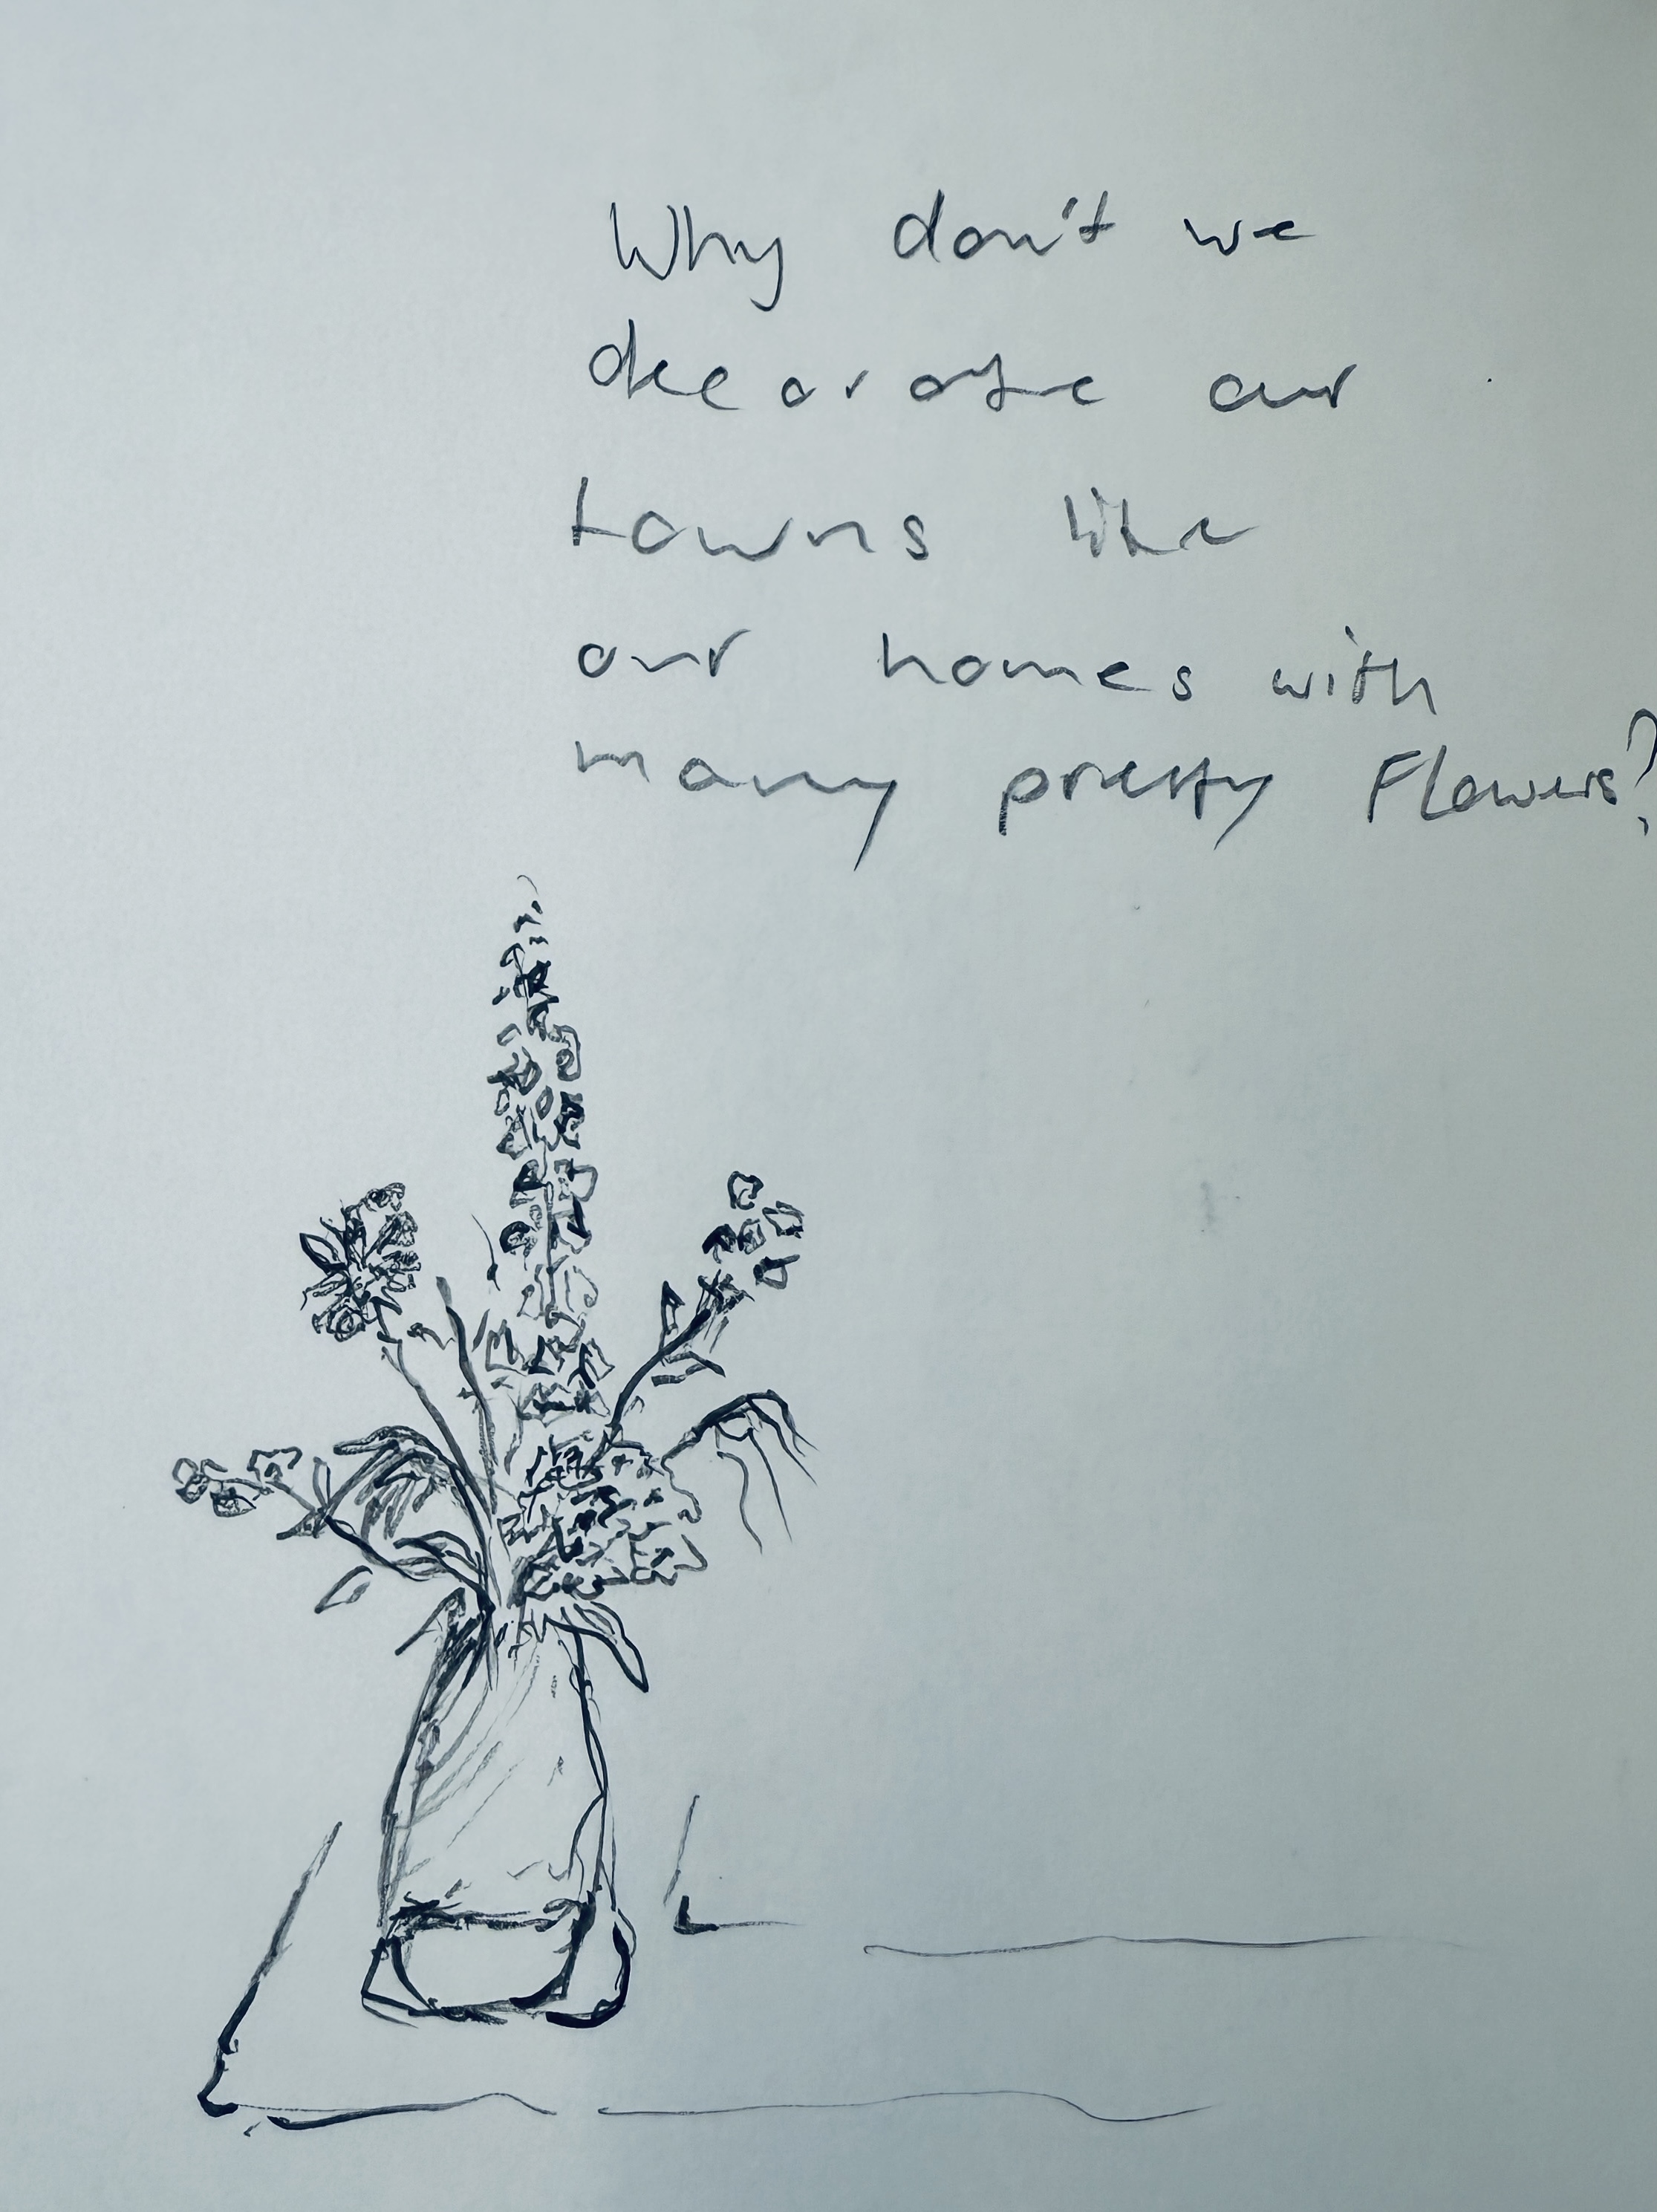 Why don't we
decorate our
towns like
our homes with
many pretty Flowers?